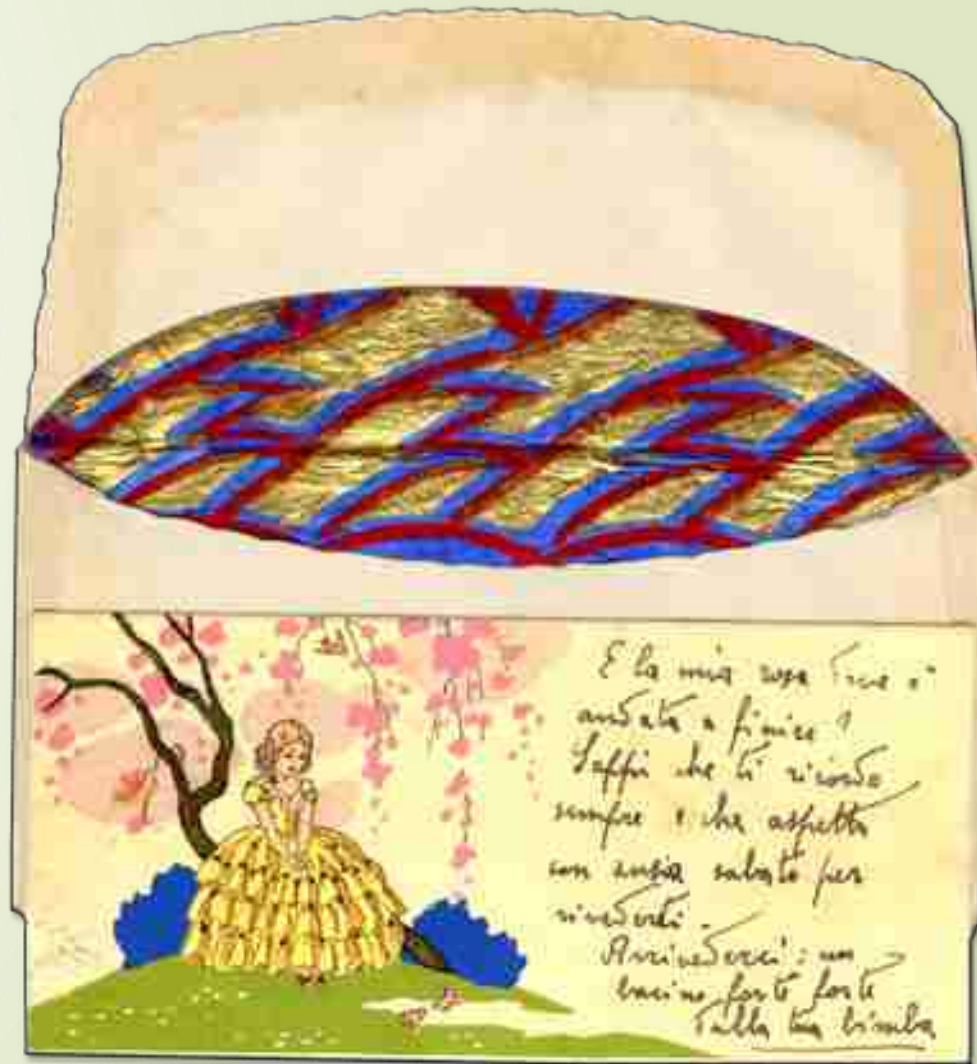 E la mia rosa dove è
andata a finire?
Sappi che ti ricordo
sempre e che aspetto
con ansia sabato per
rivederti.
Arrivederci: un
bacino forte forte
dalla tua bimba